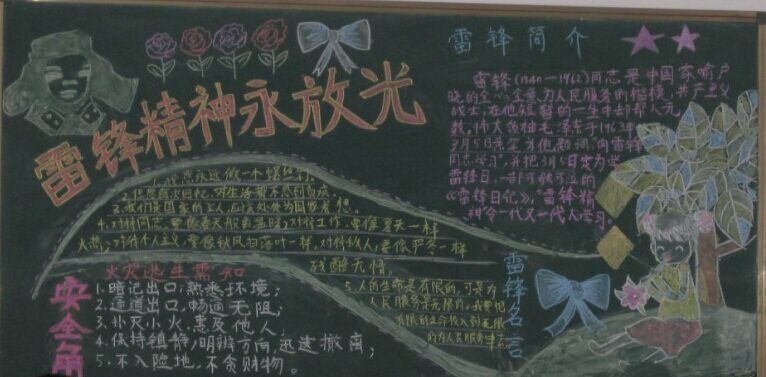 雷锋精神永放光
雷锋简介
雷锋(1940—1962)同志是中国家喻户
晓的全心全意为人民服务的楷模,共产主义
战士,在他短暂的一生中却帮人无
数,伟大领袖毛泽东于1963年
3月5日亲笔为他题词“向雷锋
同志学习”,并把3月5日定为学
雷锋日,一部可歌可泣的
《雷锋日记》,“雷锋精
神”令一代又一代人学习。
永远做一个螺丝钉
3.我们是国家的主人,应该处处为国家着想。
4.对待同志要像春天般的温暖,对待工作要像夏天一样
火热,对待个人主义要像秋风扫落叶一样,对待敌人要像严冬一样
残酷无情。
5.人的生命是有限的,可是为
人民服务是无限的,我要把
有限的生命投入到无限
的为人民服务中去
雷锋名言
安全角
火灾逃生需知
1.暗记出口,熟悉环境;
2.通道出口,畅通无阻;
3.扑灭小火,惠及他人;
4.保持镇静,明辨方向,迅速撤离;
5.不入险地,不贪财物。